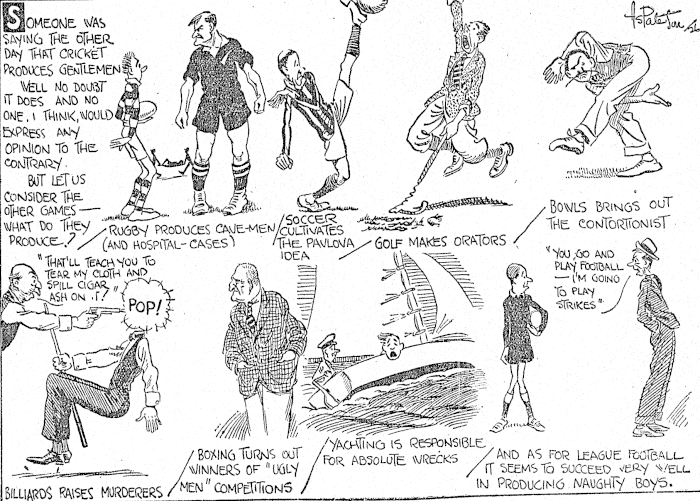 SOMEONE WAS
SAYING THE OTHER
DAY THAT CRICKET
PRODUCES GENTLEMEN
WELL NO DOUBT
IT DOES AND NO
ONE, I THINK, WOULD
EXPRESS ANY
OPINION TO THE
CONTRARY.
BUT LET US
CONSIDER THE
OTHER GAMES—
WHAT DO THEY
PRODUCE?
RUGBY PRODUCES CAVE-MEN
(AND HOSPITAL-CASES)
SOCCER
CULTIVATES
THE PAVLOVA
IDEA
GOLF MAKES ORATORS
BOWLS BRINGS OUT
THE CONTORTIONIST
"THAT'LL TEACH YOU TO
TEAR MY CLOTH AND
SPILL CIGAR
ASH ON IT!"
POP!
BILLIARDS RAISES MURDERERS
BOXING TURNS OUT
WINNERS OF "UGLY
MEN" COMPETITIONS
YACHTING IS RESPONSIBLE
FOR ABSOLUTE WRECKS
"YOU, GO AND
PLAY FOOTBALL
— I'M GOING
TO PLAY
STRIKES"
AND AS FOR LEAGUE FOOTBALL
IT SEEMS TO SUCCEED VERY WELL
IN PRODUCING NAUGHTY BOYS.